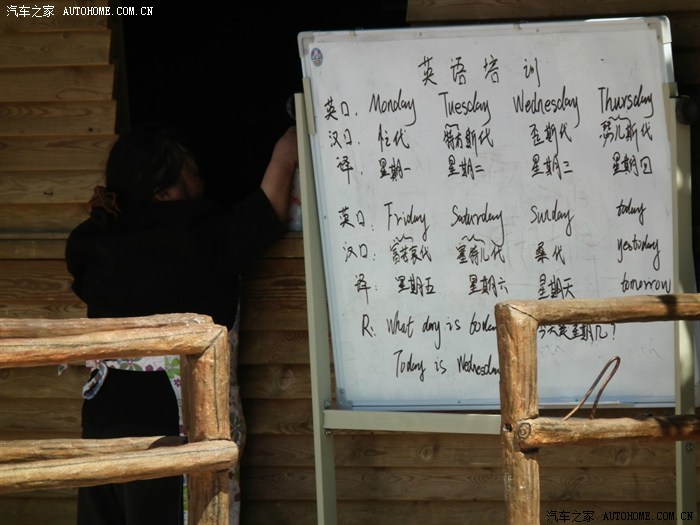 汽车之家 AUTOHOME.COM.CN
英语培训
英口. Monday Tuesday Wednesday Thursday
汉口. 忙代 特方斯代 歪斯代 瑟儿斯代
译. 星期一 星期二 星期三 星期四
英口. Friday Saturday Sunday today
汉口. 塞特儿代 桑代 yestiday
译: 星期五 星期六 星期天 tomorrow
R: What day is today 今天是星期几?
Today is Wednesday
汽车之家 AUTOHOME.COM.CN